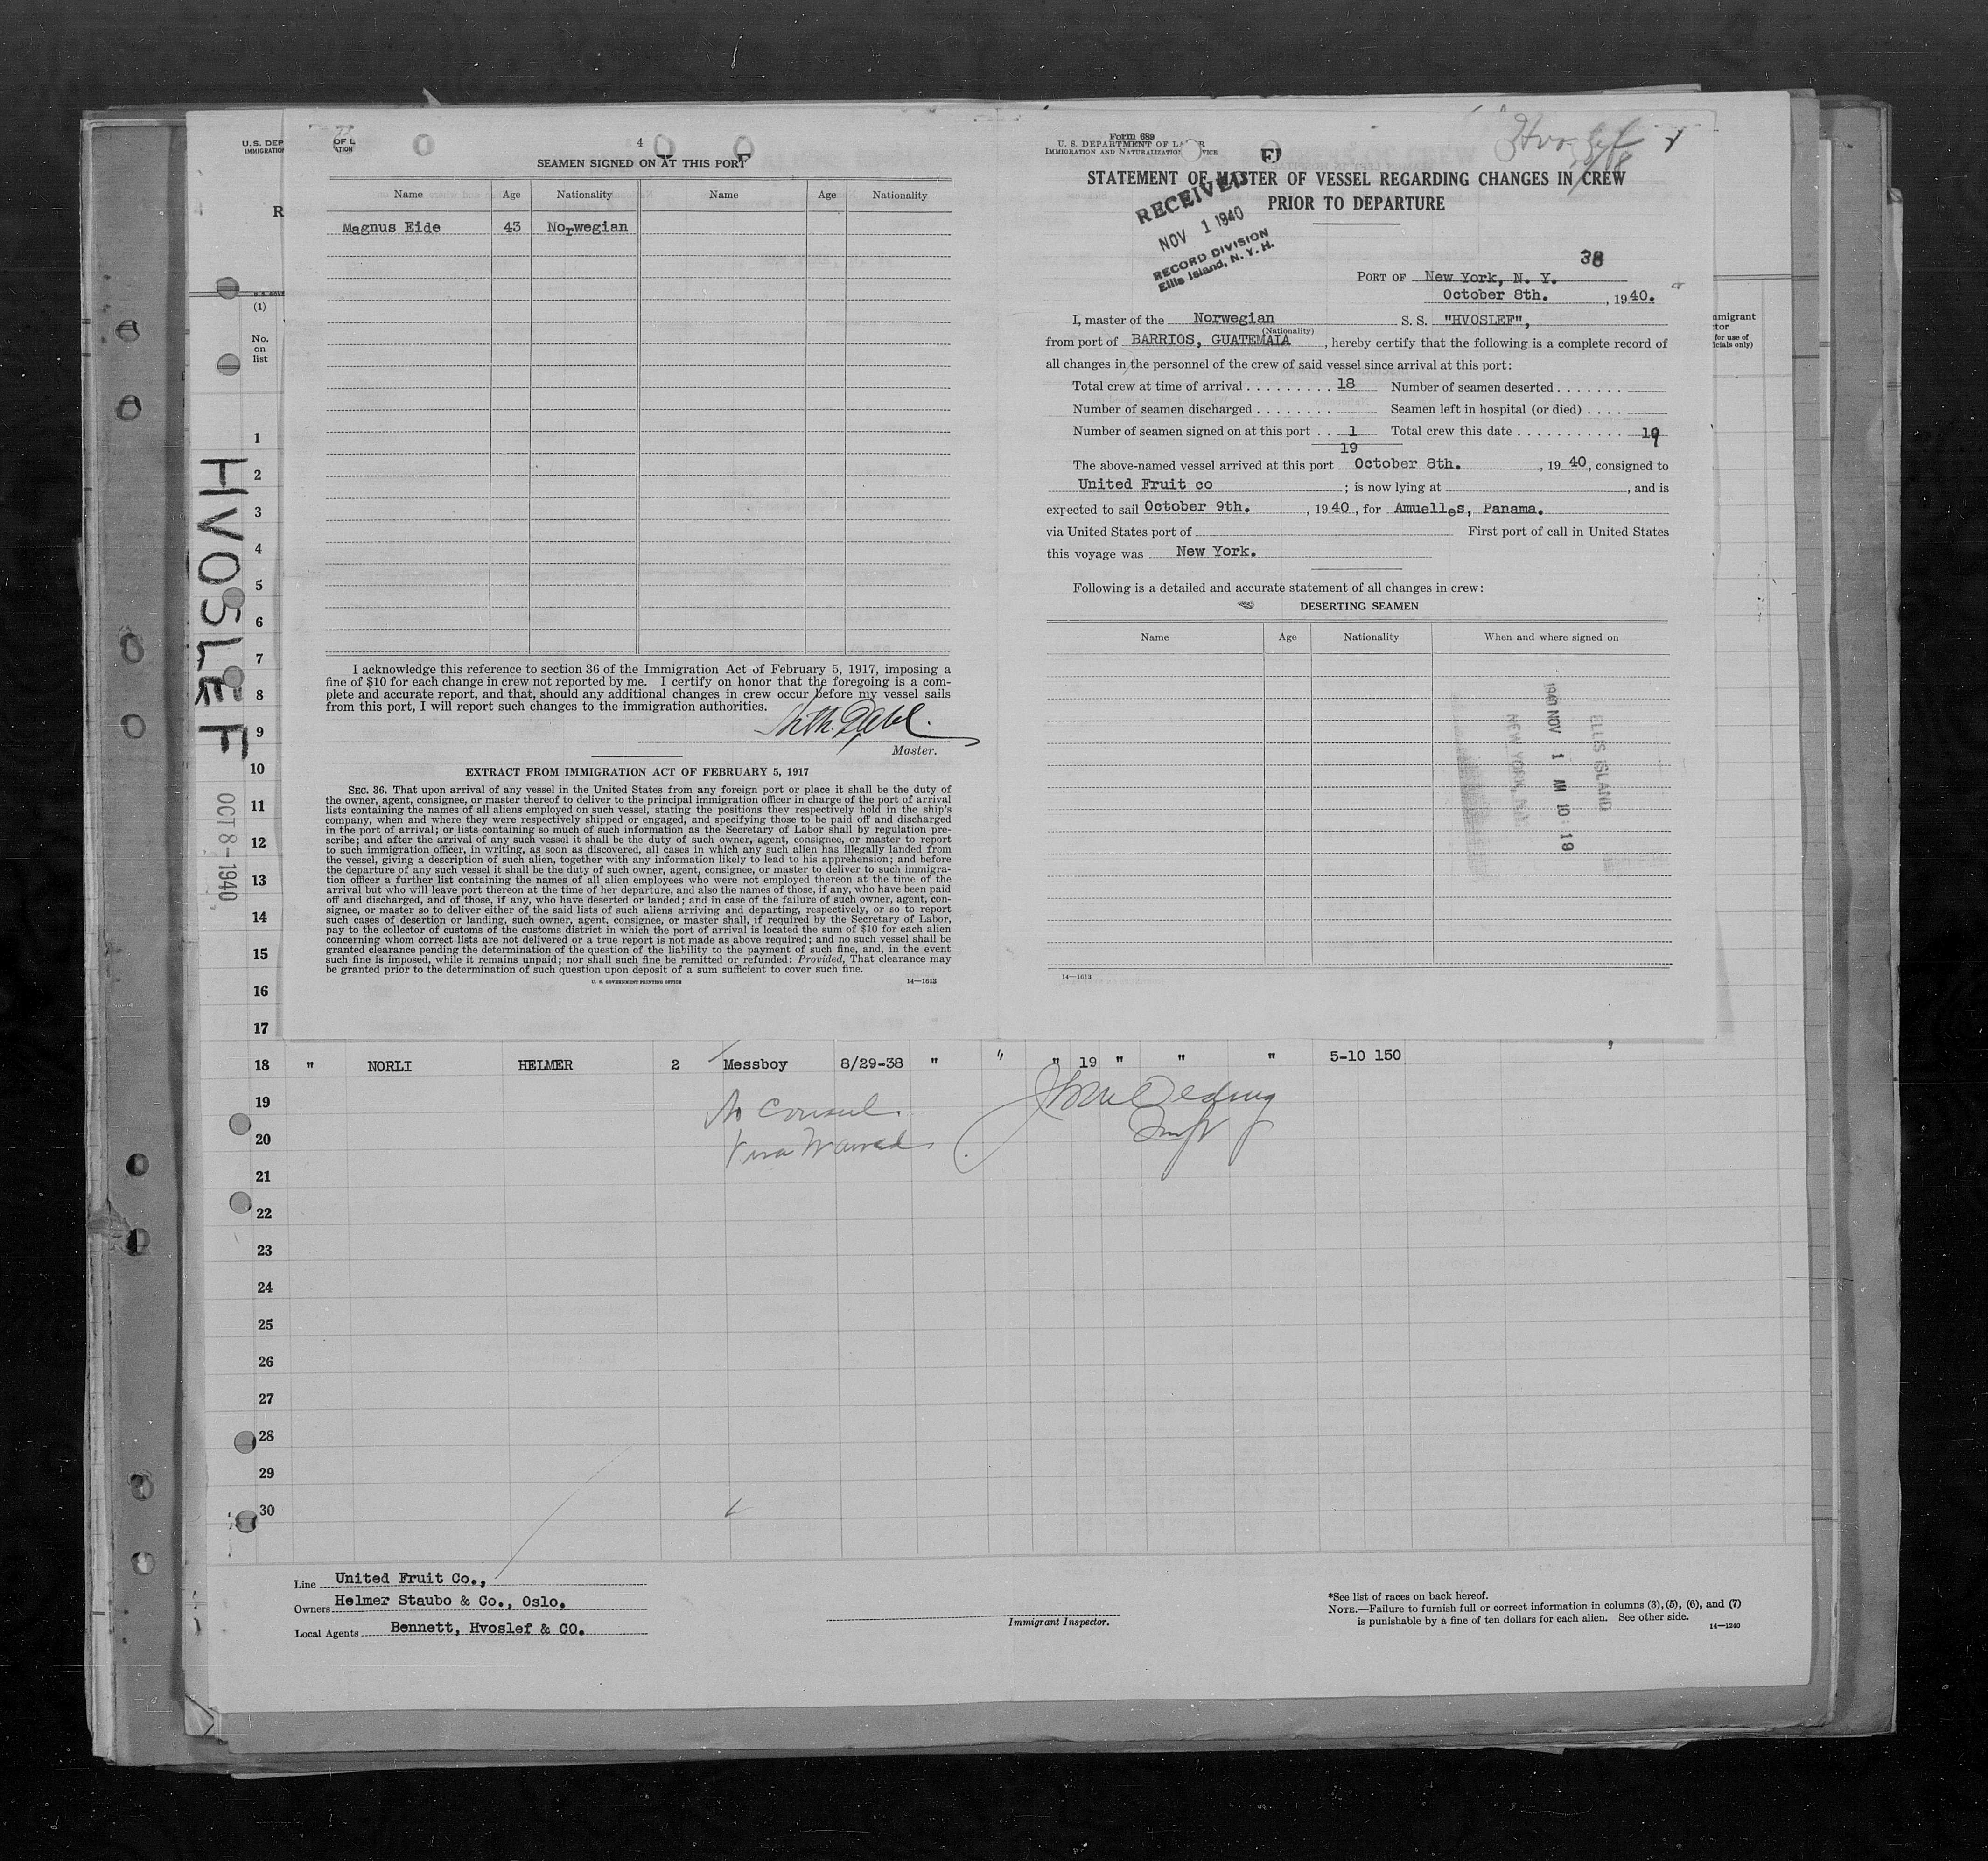 U.S. DEP
IMMIGRATION
OF L
ATION
R
(1)
No.
on
list
1
2
3
4
5
6
7
8
9
10
11
12
13
14
15
16
17
HVOSLEF
OCT 8-1940
4
SEAMEN SIGNED ON AT THIS PORT
Name Age Nationality Name Age Nationality
Magnus Eide 43 Norwegian
I acknowledge this reference to section 36 of the Immigration Act of February 5, 1917, imposing a
fine of $10 for each change in crew not reported by me. I certify on honor that the foregoing is a com-
plete and accurate report, and that, should any additional changes in crew occur before my vessel sails
from this port, I will report such changes to the immigration authorities.
Master.
EXTRACT FROM IMMIGRATION ACT OF FEBRUARY 5, 1917
SEC. 36. That upon arrival of any vessel in the United States from any foreign port or place it shall be the duty of
the owner, agent, consignee, or master thereof to deliver to the principal immigration officer in charge of the port of arrival
lists containing the names of all aliens employed on such vessel, stating the positions they respectively hold in the ship's
company, when and where they were respectively shipped or engaged, and specifying those to be paid off and discharged
in the port of arrival; or lists containing so much of such information as the Secretary of Labor shall by regulation pre-
scribe; and after the arrival of any such vessel it shall be the duty of such owner, agent, consignee, or master to report
to such immigration officer, in writing, as soon as discovered, all cases in which any such alien has illegally landed from
the vessel, giving a description of such alien, together with any information likely to lead to his apprehension; and before
the departure of any such vessel it shall be the duty of such owner, agent, consignee, or master to deliver to such immigra-
tion officer a further list containing the names of all alien employees who were not employed thereon at the time of the
arrival but who will leave port thereon at the time of her departure, and also the names of those, if any, who have been paid
off and discharged, and of those, if any, who have deserted or landed; and in case of the failure of such owner, agent, con-
signee, or master so to deliver either of the said lists of such aliens arriving and departing, respectively, or so to report
such cases of desertion or landing, such owner, agent, consignee, or master shall, if required by the Secretary of Labor,
pay to the collector of customs of the customs district in which the port of arrival is located the sum of $10 for each alien
concerning whom correct lists are not delivered or a true report is not made as above required; and no such vessel shall be
granted clearance pending the determination of the question of the liability to the payment of such fine, and, in the event
such fine is imposed, while it remains unpaid; nor shall such fine be remitted or refunded: Provided, That clearance may
be granted prior to the determination of such question upon deposit of a sum sufficient to cover such fine.
U. S. GOVERNMENT PRINTING OFFICE 14—1613
Form 689
U. S. DEPARTMENT OF LABOR
IMMIGRATION AND NATURALIZATION SERVICE
Hvoslef
10/8
STATEMENT OF MASTER OF VESSEL REGARDING CHANGES IN CREW
PRIOR TO DEPARTURE
RECEIVED
NOV 1 1940
RECORD DIVISION
Ellis Island, N. Y. H.
38
PORT OF New York, N. Y.
October 8th. , 1940.
I, master of the Norwegian S. S. "HVOSLEF",
(Nationality)
from port of BARRIOS, GUATEMAIA , hereby certify that the following is a complete record of
all changes in the personnel of the crew of said vessel since arrival at this port:
Total crew at time of arrival . . . . . . . . . 18 Number of seamen deserted . . . . . . .
Number of seamen discharged . . . . . . . . Seamen left in hospital (or died) . . . .
Number of seamen signed on at this port . . 1 Total crew this date . . . . . . . . . . . . 19
19
The above-named vessel arrived at this port October 8th. , 19 40, consigned to
United Fruit co ; is now lying at , and is
expected to sail October 9th. , 19 40 , for Amuelles, Panama.
via United States port of First port of call in United States
this voyage was New York.
Following is a detailed and accurate statement of all changes in crew:
DESERTING SEAMEN
Name Age Nationality When and where signed on
ELLIS ISLAND
1940 NOV 1 AM 10:18
NEW YORK, N.Y.
14—1613
mmigrant
ctor
for use of
icials only)
18 " NORLI HELMER 2 Messboy 8/29-38 " " " 19 " " " 5-10 150
19
20
21
22
23
24
25
26
27
28
29
30
No Consul
Visa Waived
Line United Fruit Co.,
Owners Helmer Staubo & Co., Oslo.
Local Agents Bennett, Hvoslef & CO.
Immigrant Inspector.
*See list of races on back hereof.
NOTE.—Failure to furnish full or correct information in columns (3), (5), (6), and (7)
is punishable by a fine of ten dollars for each alien. See other side.
14—1240